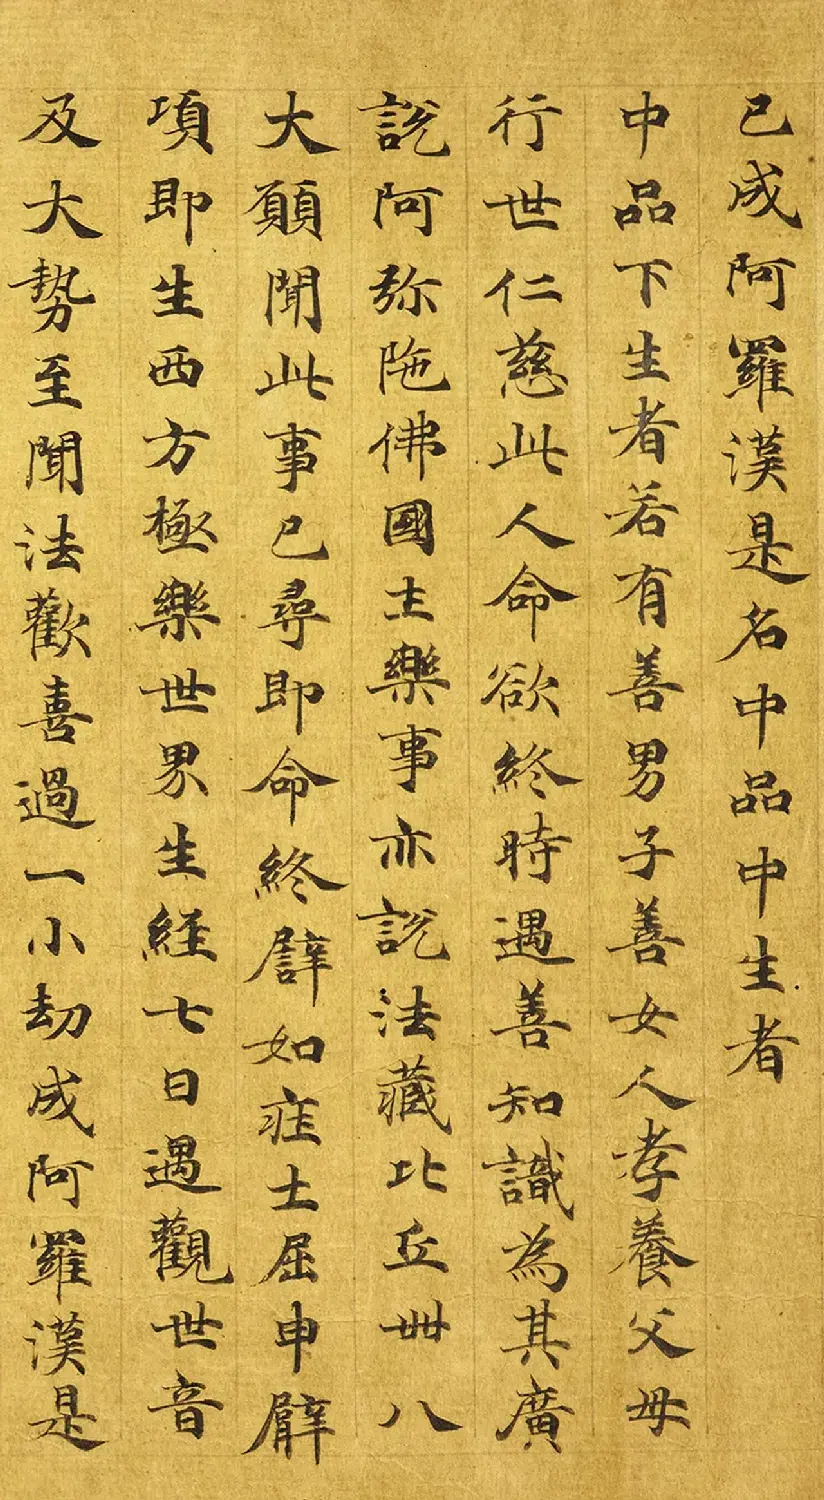 已成阿羅漢是名中品中生者
中品下生者若有善男子善女人孝養父母
行世仁慈此人命欲終時遇善知識為其廣
說阿弥陁佛國土樂事亦說法藏比丘卌八
大願聞此事已尋即命終譬如疰士屈申臂
項即生西方極樂世界生経七日遇觀世音
及大勢至聞法歡喜過一小劫成阿羅漢是